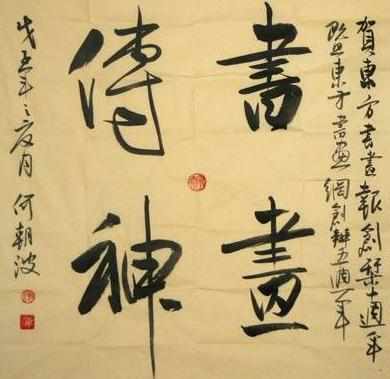 賀東方書畫報創辦十週年
暨東方書畫網創辦五週年
書畫
傳神
戊子年之夏月 何朝波